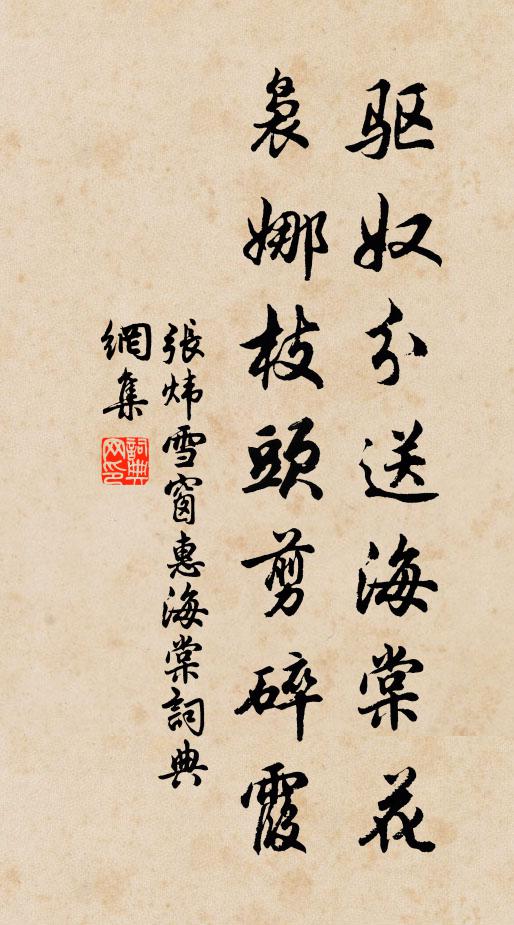 驱奴分送海棠花
袅娜枝頭剪碎霞
張炜雪窗惠海棠詞典
網集
詞典
网印